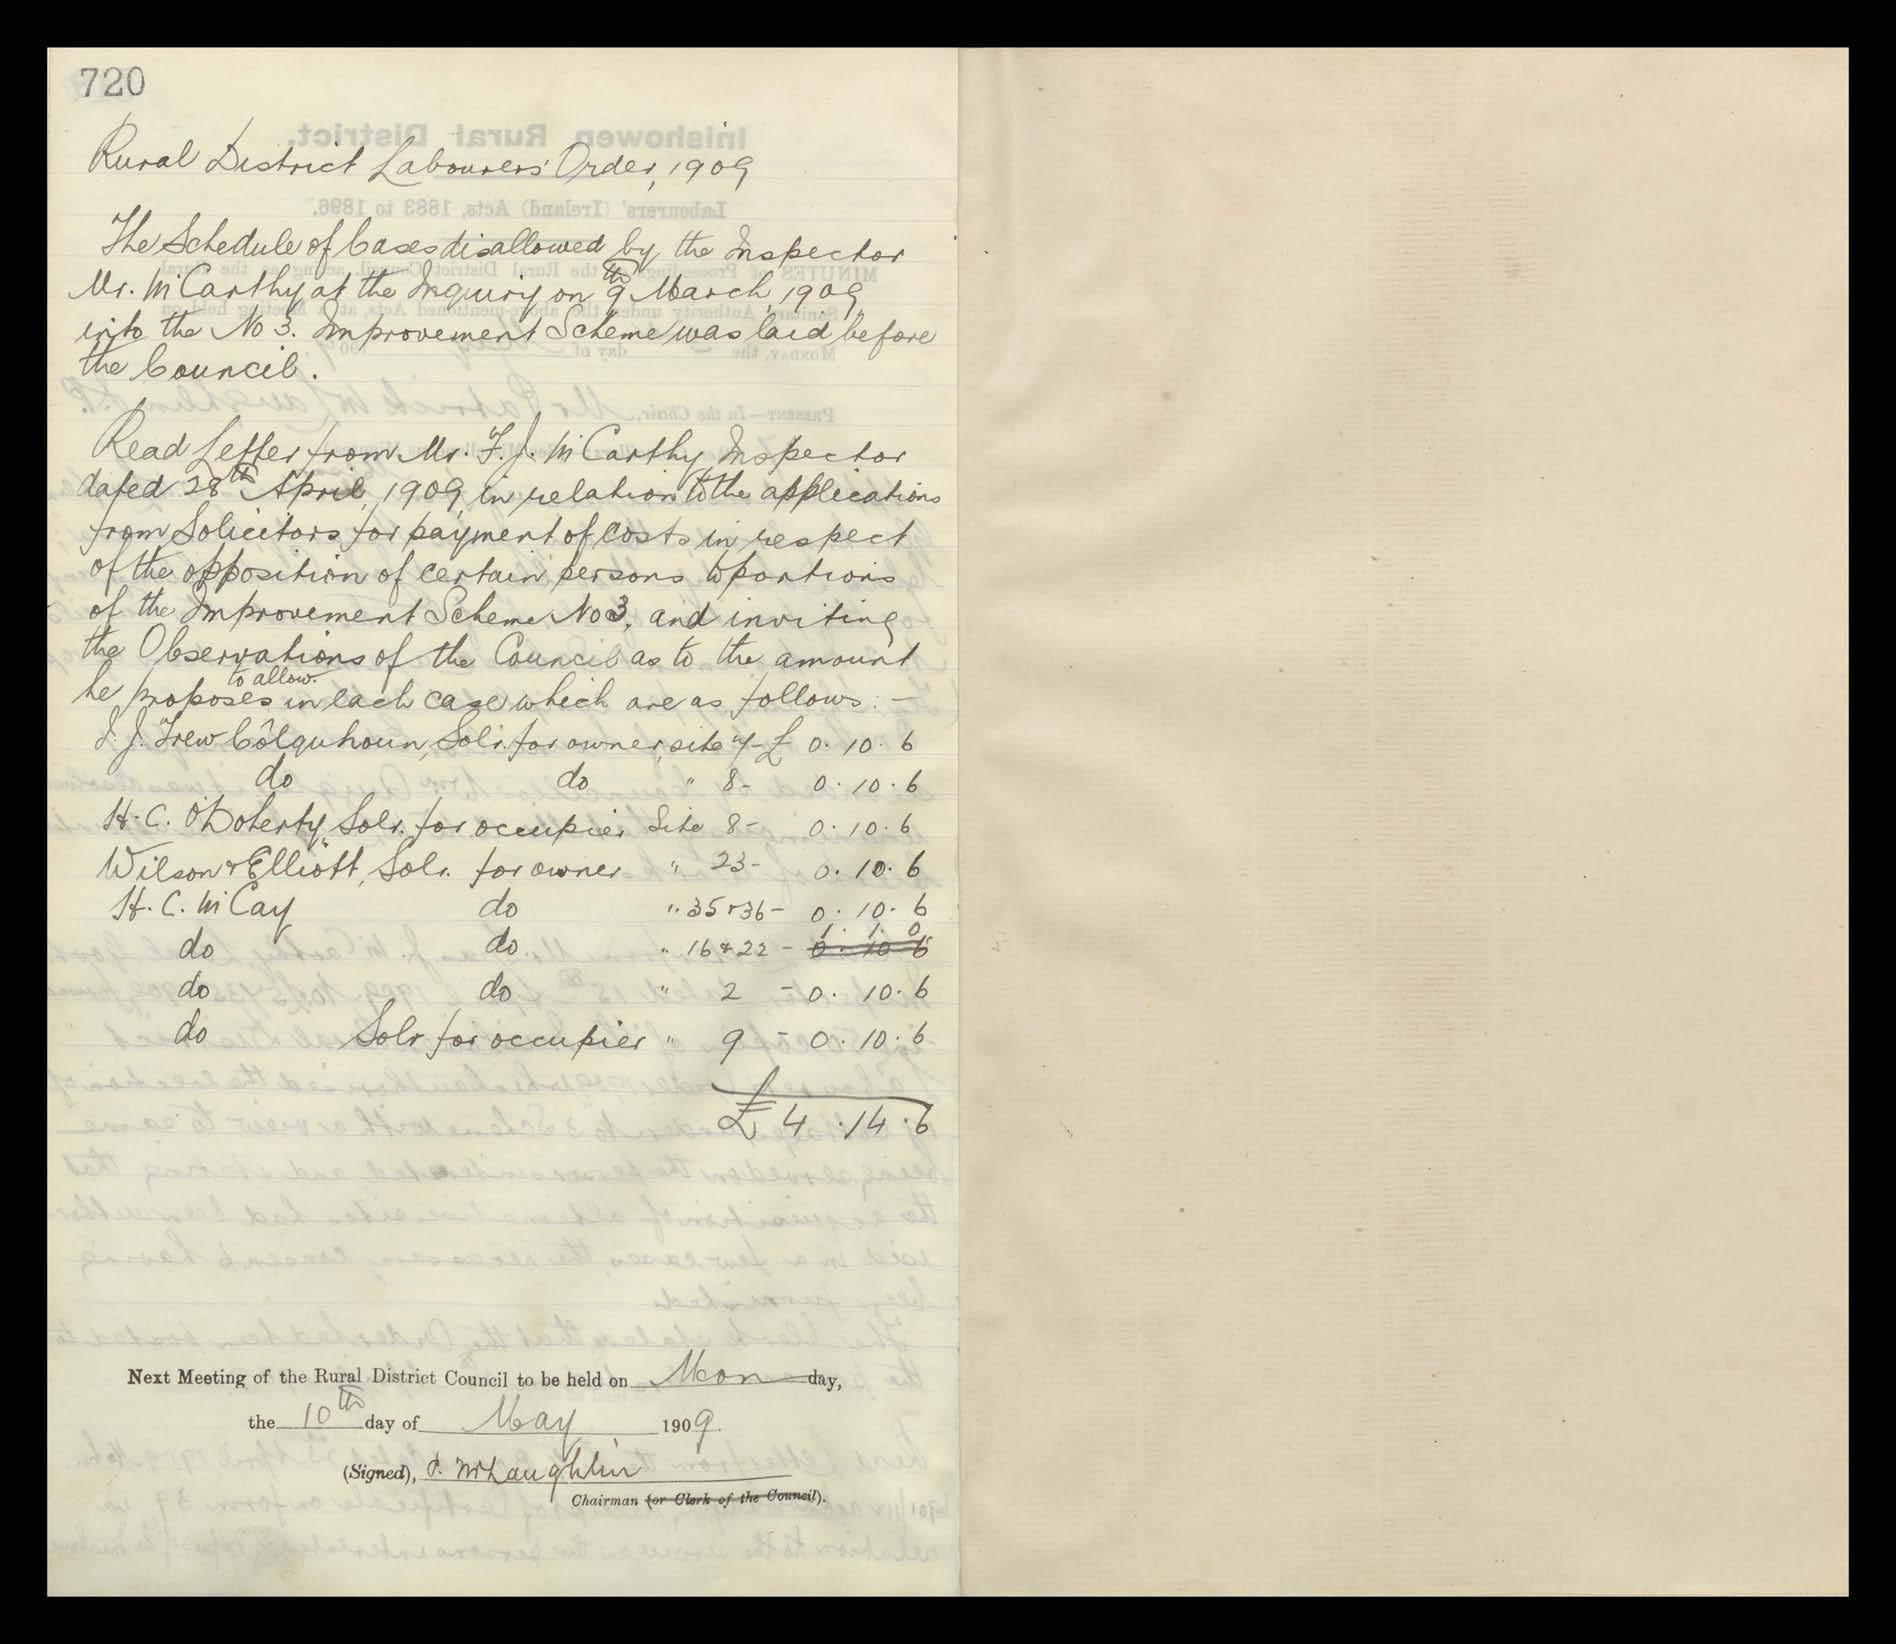 720
Rural District Labourers' Order, 1909
The Schedule of Cases disallowed by the Inspector
Mr. McCarthy at the Inquiry on 9th March, 1909
into the No 3. Improvement Scheme was laid before
the Council.
Read Letter from Mr. F. J. McCarthy Inspector
dated 28th April, 1909, in relation to the applications
from Solicitors for payment of costs in respect
of the opposition of certain persons to portions
of the Improvement Scheme No 3, and inviting
the Observations of the Council as to the amount
he proposes to allow. in each case which are as follows:-
J. J. Trew Colquhoun, Solr. for owner, site 4 - £ 0. 10. 6
do do " 8 - 0. 10. 6
H. C. O'Doherty, Solr. for occupier Site 8 - 0. 10. 6
Wilson & Elliott, Solr. for owner " 23 - 0. 10. 6
H. C. McCay do " 35 & 36 - 0. 10. 6
do do. " 16 & 22 - 0. 10 6 1. 1. 0
do do " 2 - 0. 10. 6
do Solr for occupier " 9 - 0. 10. 6
£ 4. 14. 6
Next Meeting of the Rural District Council to be held on Monday,
the 10th day of May 1909.
(Signed), P. McLaughlin
Chairman (or Clerk of the Council).